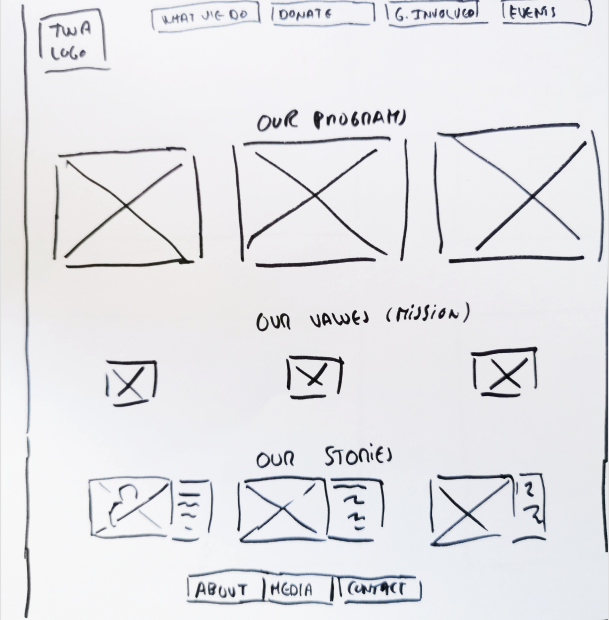 TWA
LOGO
WHAT WE DO
DONATE
G. INVOLVED
EVENTS
OUR PROGRAMS
OUR VALUES (MISSION)
OUR STORIES
ABOUT
MEDIA
CONTACT